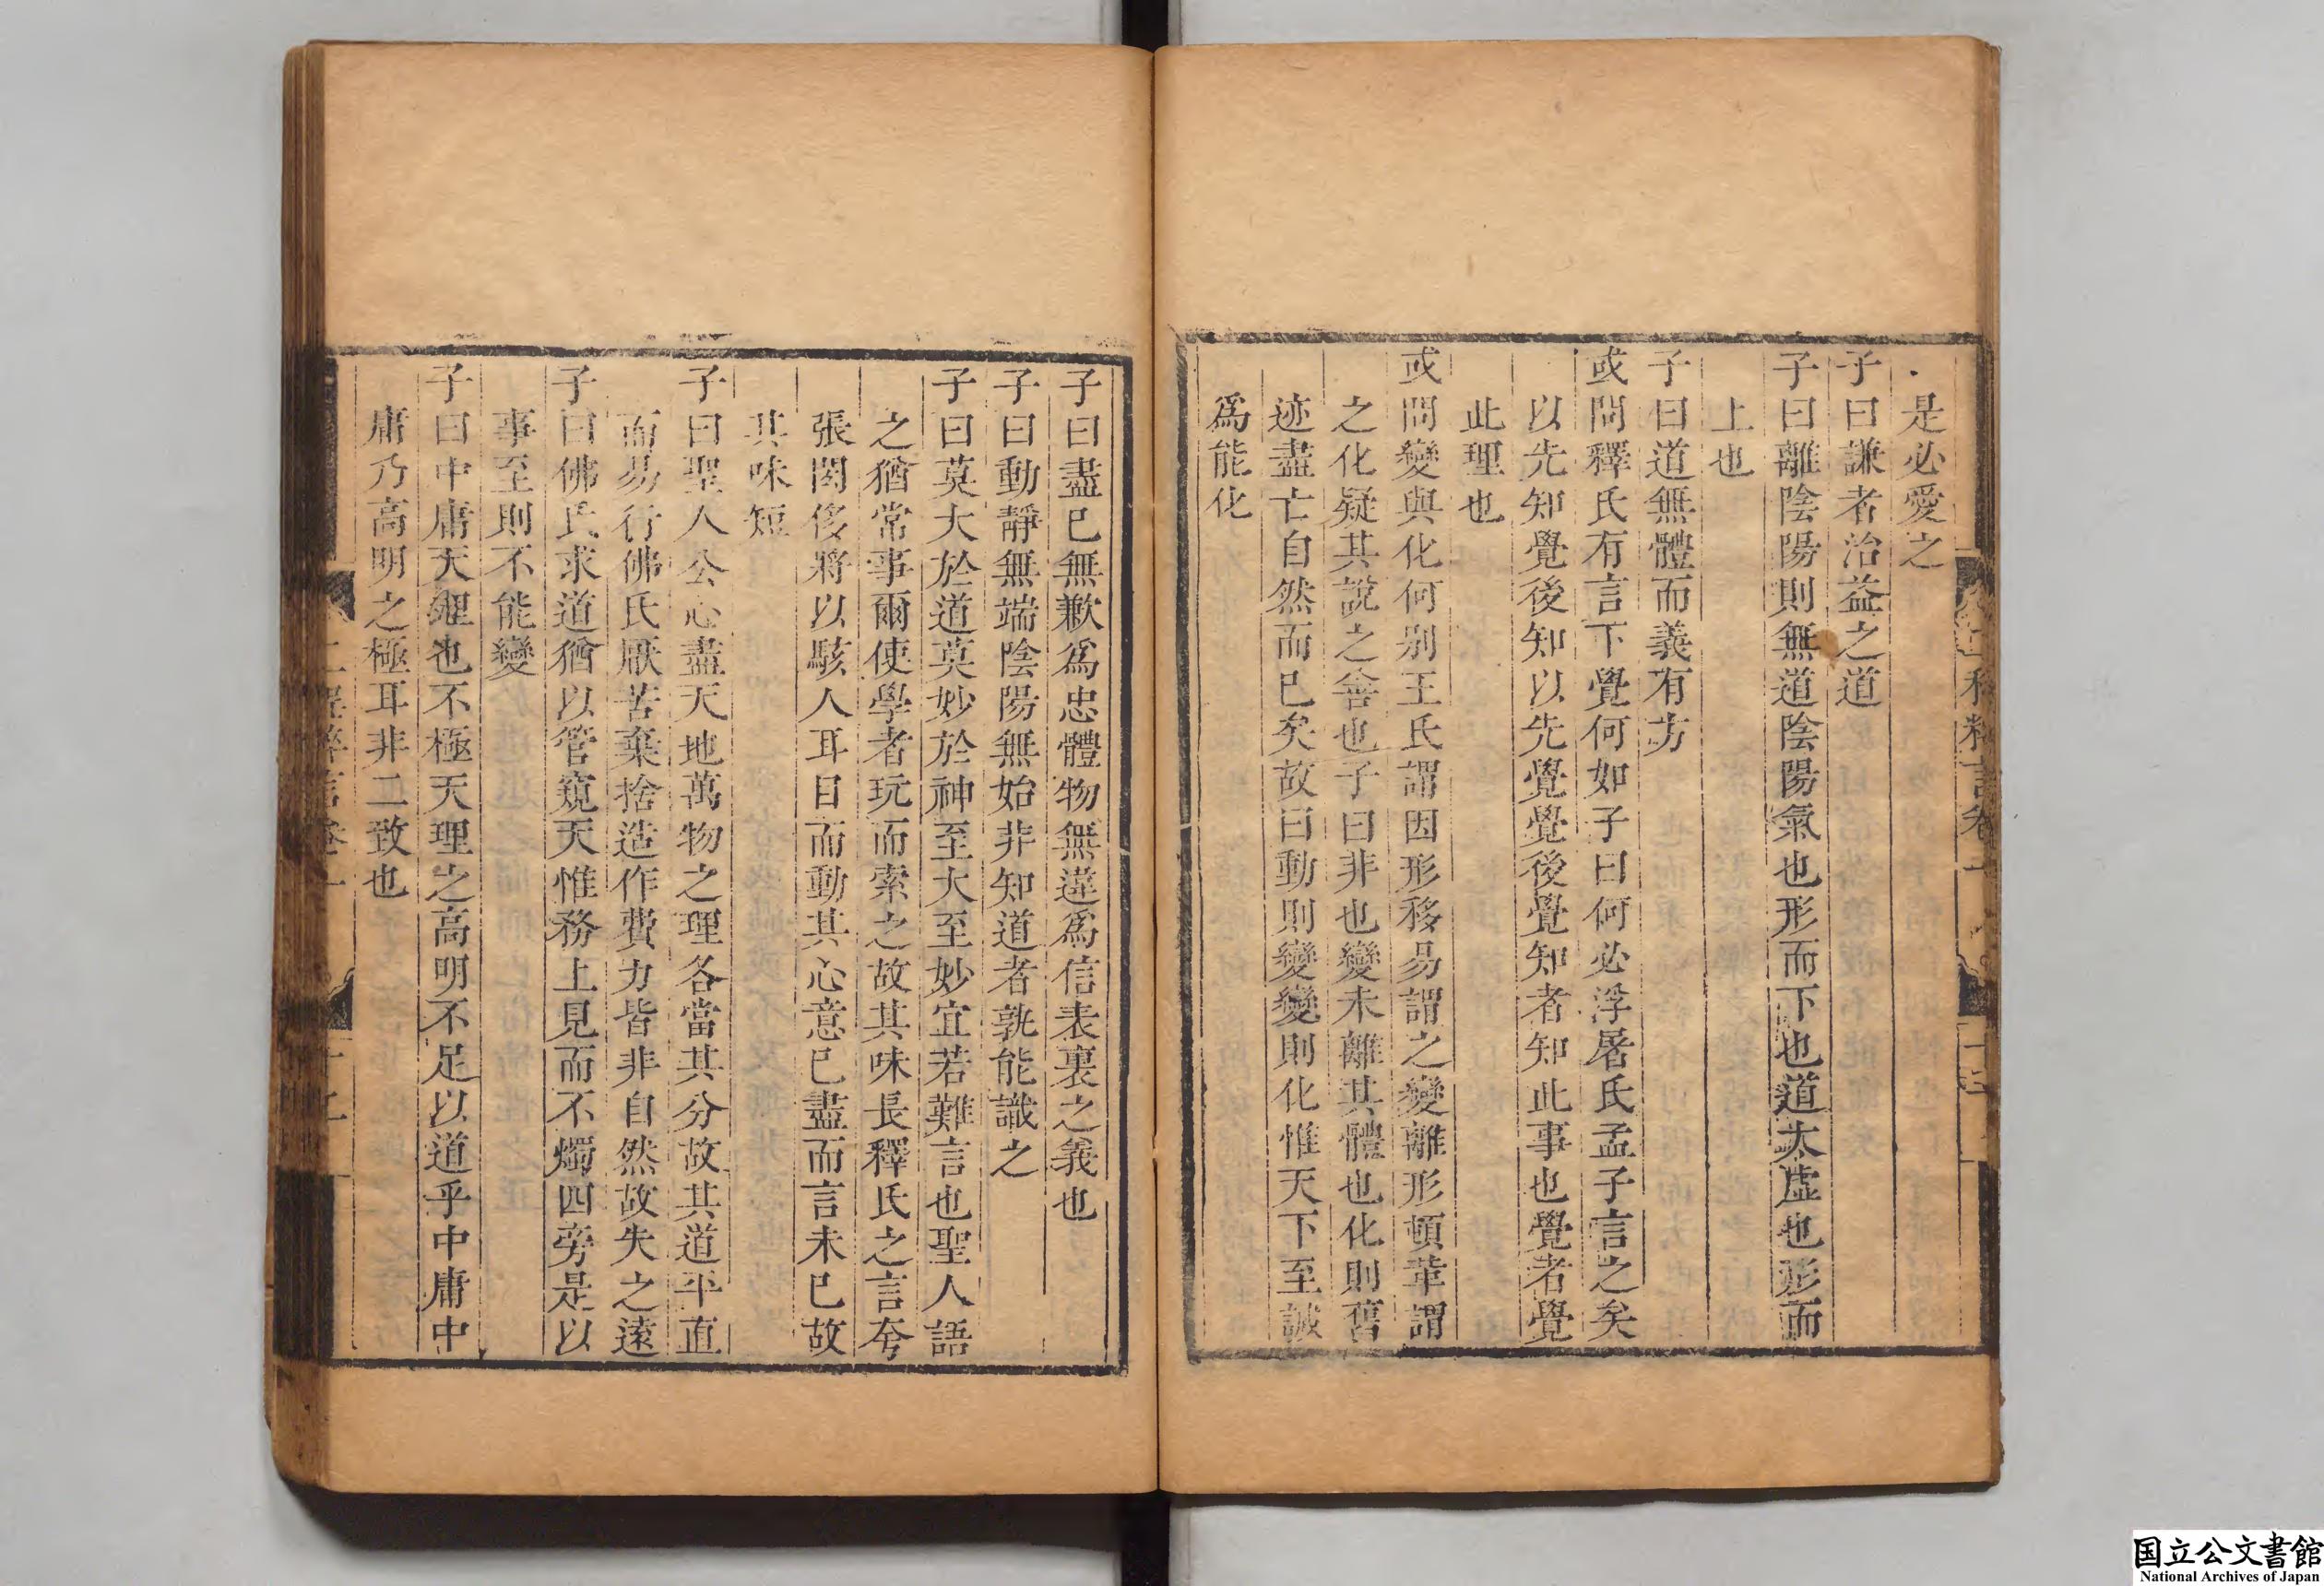 是必愛之
子曰謙者治益之道
子曰離陰陽則無道陰陽氣也形而下也道太虛也形而
上也
子曰道無體而義有方
或問釋氏有言下覺何如子曰何必浮屠氏孟子言之矣
以先知覺後知以先覺覺後覺知者知此事也覺者覺
此理也
或問變與化何别王氏謂因形移易謂之變離形頓革謂
之化疑其說之善也子曰非也變未離其體也化則舊
迹盡亡自然而已矣故曰動則變變則化惟天下至誠
爲能化
子曰盡已無歉爲忠體物無違爲信表裏之義也
子曰動靜無端陰陽無始非知道者孰能識之
子曰莫大於道莫妙於神至大至妙宜若難言也聖人語
之猶常事爾使學者玩而索之故其味長釋氏之言夸
張閎侈將以駭人耳目而動其心意已盡而言未已故
其味短
子曰聖人公心盡天地萬物之理各當其分故其道平直
而易行佛氏厭苦棄捨造作費力皆非自然故失之遠
子曰佛氏求道猶以管窺天惟務上見而不燭四旁是以
事至則不能變
子曰中庸天理也不極天理之高明不足以道乎中庸中
庸乃高明之極耳非二致也
国立公文書館
National Archives of Japan